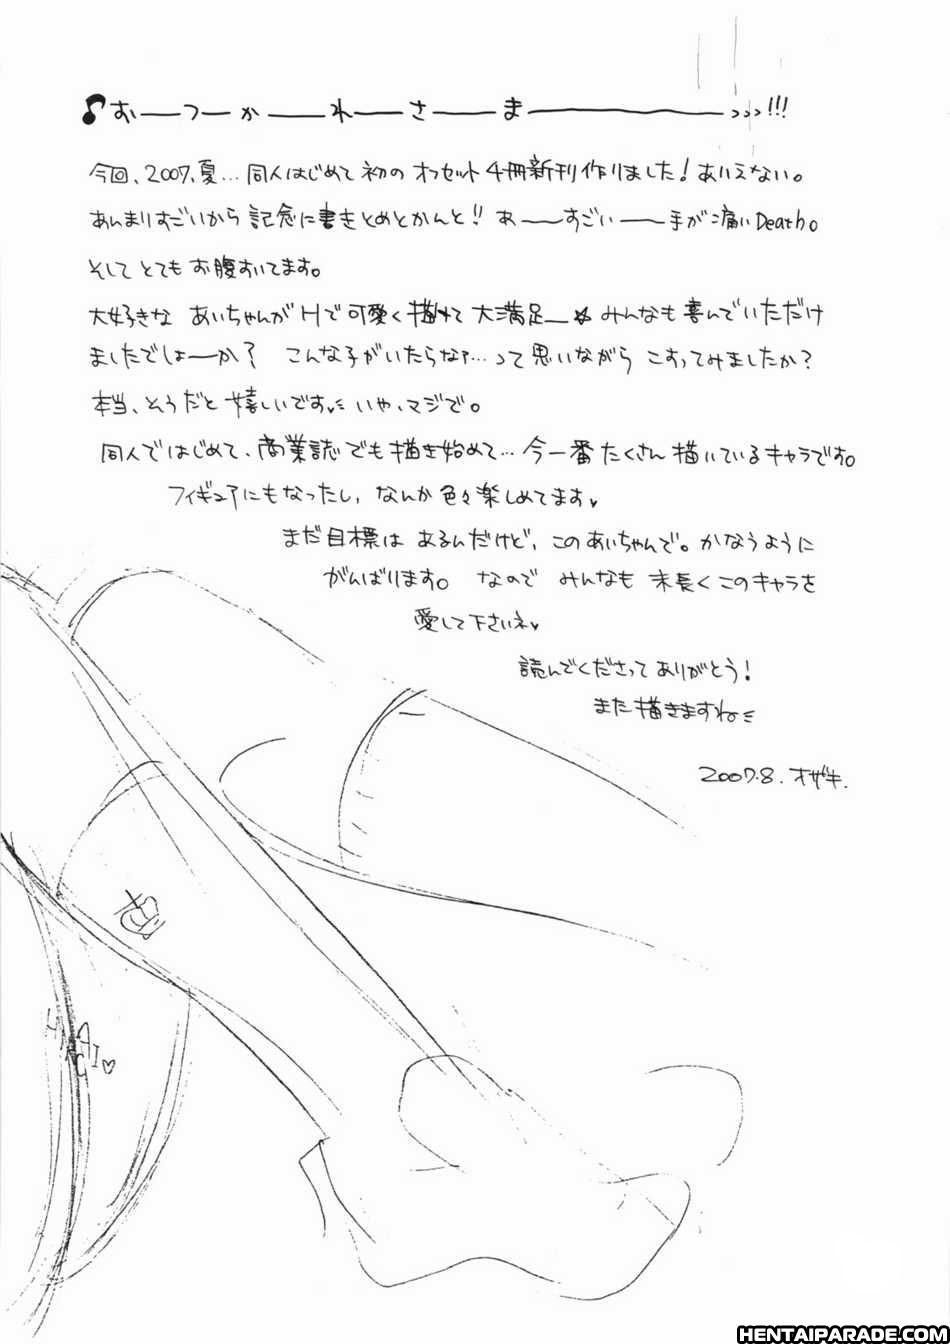 ♪おーつーかーれーさーまー>>>!!!
今回、2007、夏…同人はじめて初のオフセット4冊新刊作りました!ありえない。
あんまりすごいから記念に書きとめとかんと!! あーすごいー手が痛いDeath。
そしてとてもお腹すいてます。
大好きな あいちゃんがHで可愛く描けて大満足ー☆みんなも喜んでいただけ
ましたでしょーか? こんな子がいたらなァ…って思いながら こすってみましたか?
本当、そうだと嬉しいです いや、マジで。
同人ではじめて、商業誌でも描き始めて…今一番たくさん描いているキャラです。
フィギュアにもなったし、なんか色々楽しめてます♥
まだ目標はあるんだけど、このあいちゃんで。かなうように
がんばります。 なので みんなも 末長くこのキャラを
愛して下さいネ♥
読んでくださってありがとう!
また描きますね
2007.8.オザキ.
HENTAIPARADE.COM